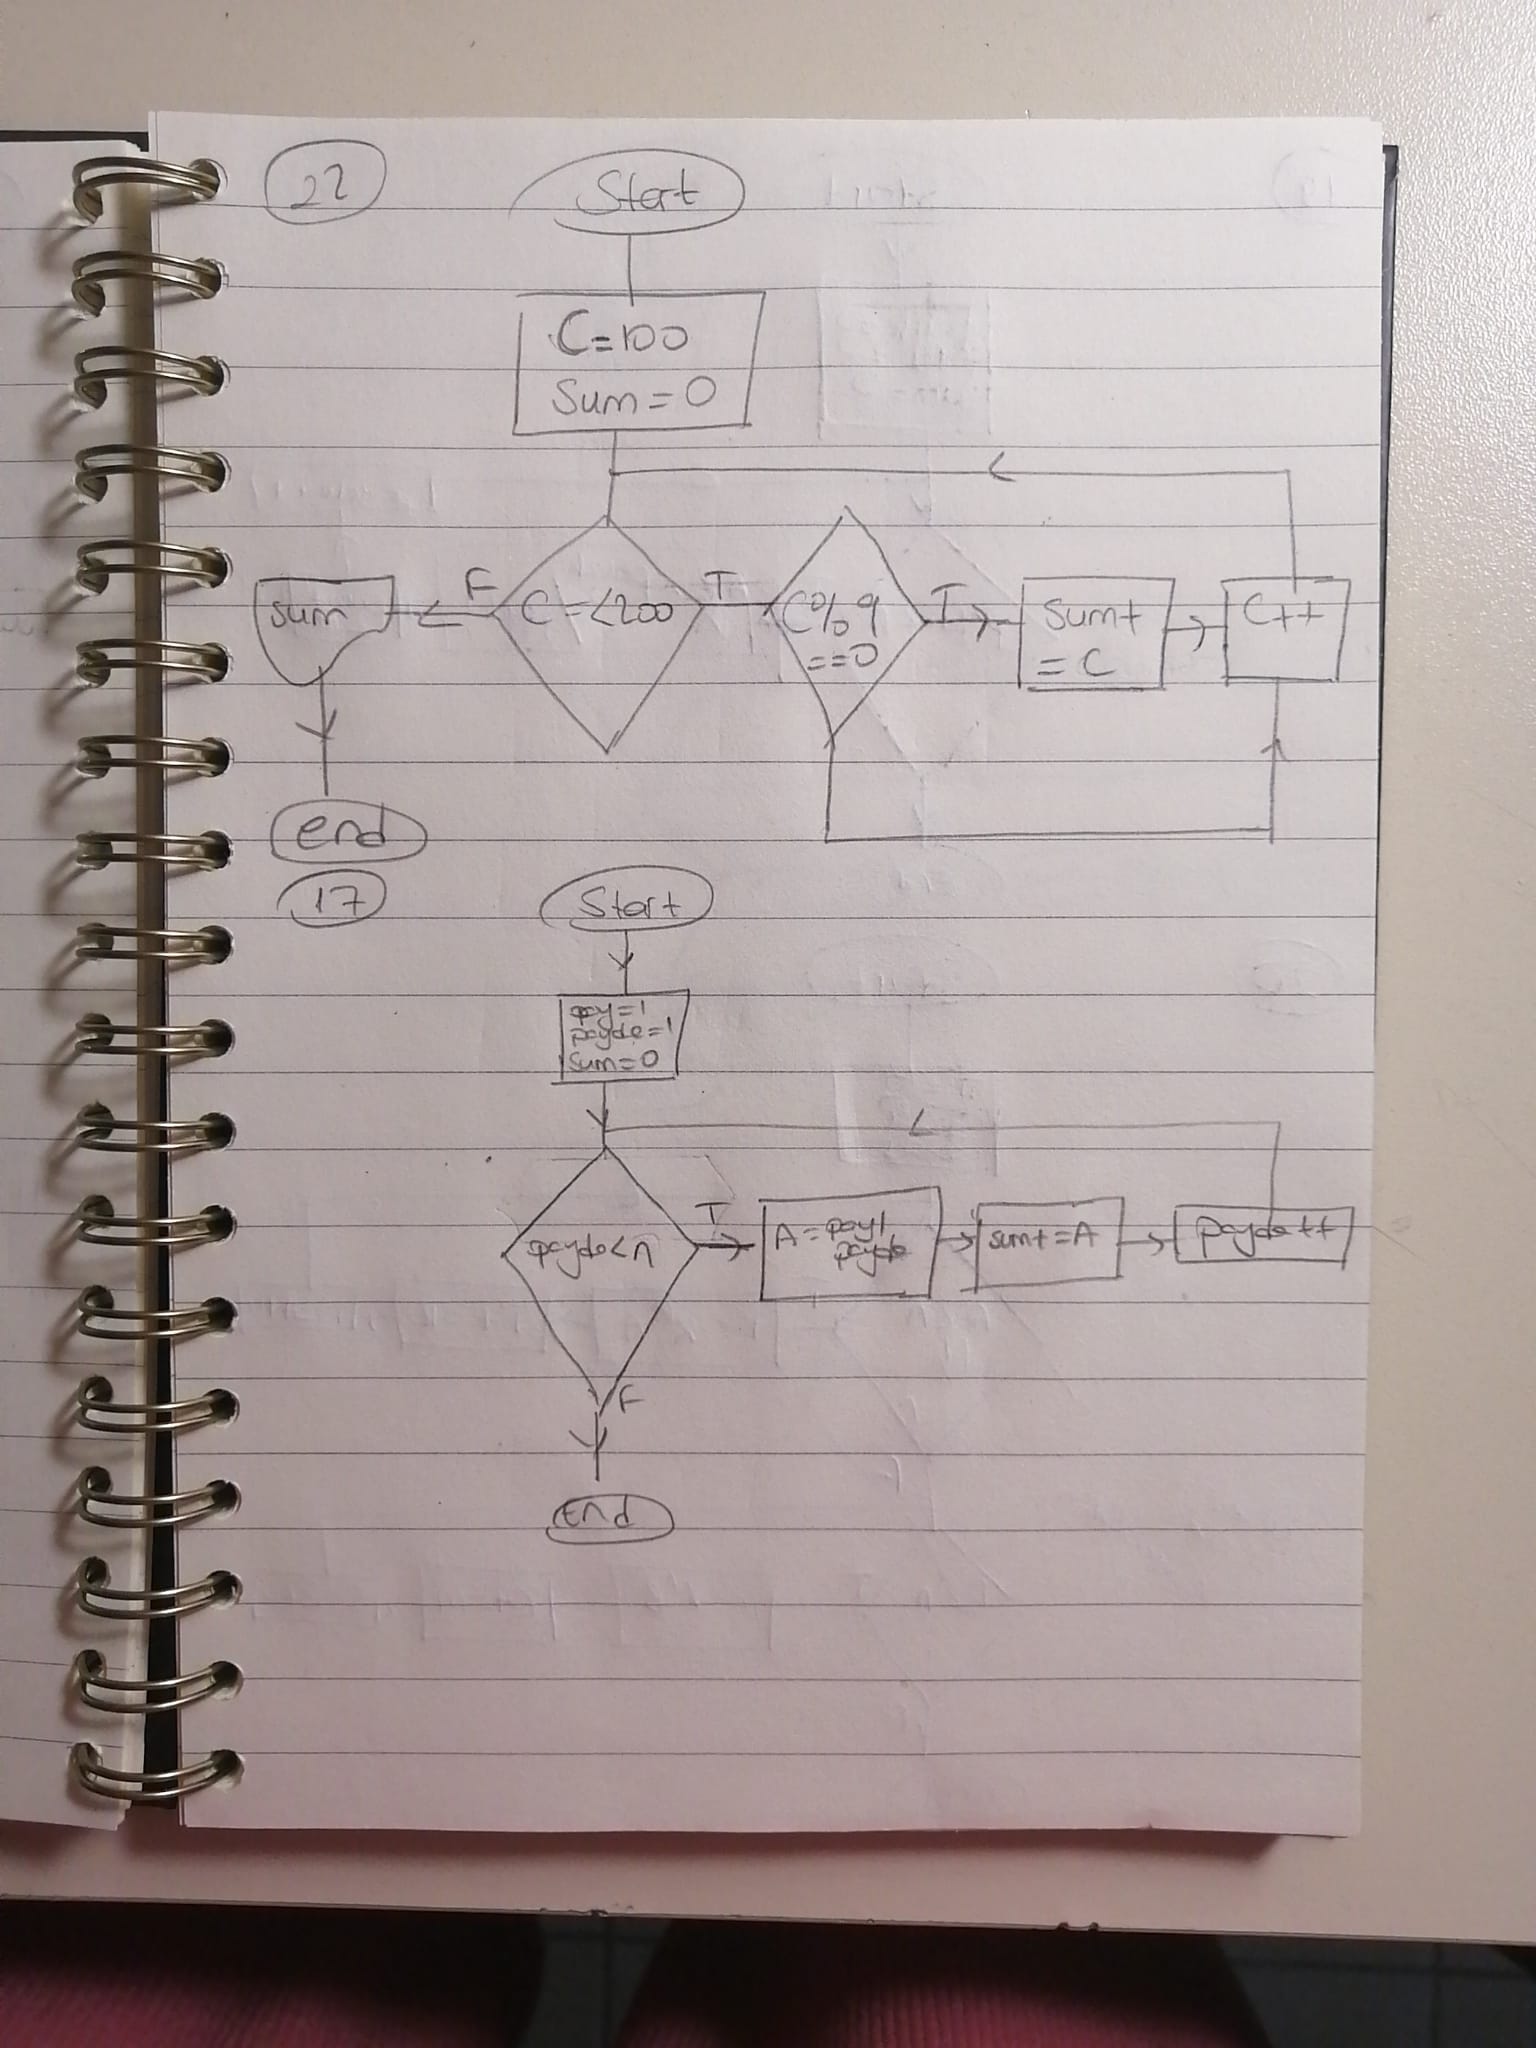 22
Start
C=100
Sum=0
sum
F
C=<200
T
C%9
==0
T
Sum+
=C
C++
end
17
Start
pay=1
payda=1
sum=0
payda<n
T
A=pay/
payda
sum+=A
payda++
F
End